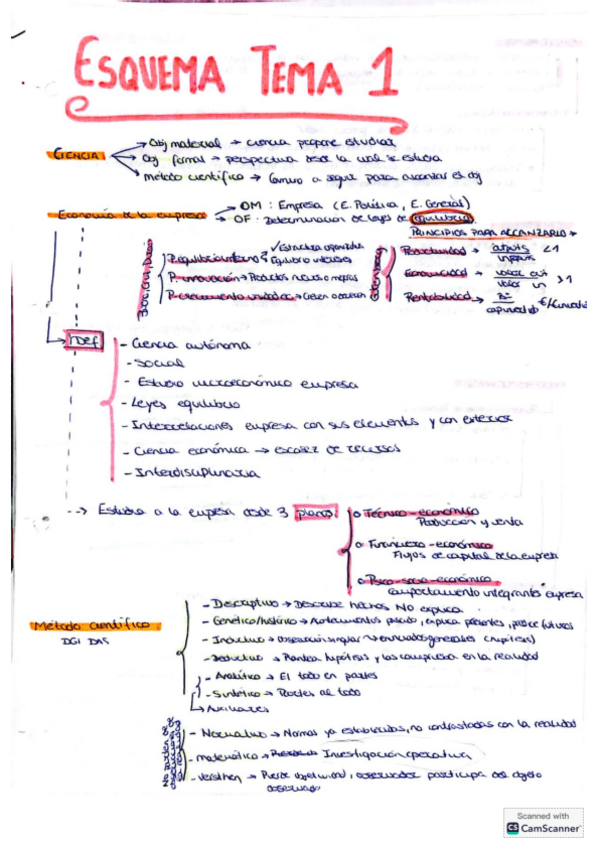 ESQUEMA TEMA 1
CIENCIA
→ Obj material → ciencia propone estudiar
→ Obj formal → perspectiva desde la cual se estudia
→ método científico → camino a seguir para alcanzar el obj
Economía de la empresa
→ OM : Empresa (E. Política, E. General)
→ OF : Determinación de leyes de equilibrio
PRINCIPIOS PARA ALCANZARLO
P. equilibrio interno → Estructura organizativa
Equilibrio intereses
P. innovación → Productos nuevos o mejores
P. crecimiento unidades → Crecen o decrecen
Productividad → outputs / inputs < 1
Economicidad → valor out / valor in > 1
Rentabilidad → Bº / capital
Def
- Ciencia autónoma
- Social
- Estudio microeconómico empresa
- Leyes equilibrio
- Interrelaciones empresa con sus elementos y con exterior
- Ciencia económica → escasez de recursos
- Interdisciplinaria
--> Estudia a la empresa desde 3 planos
o Técnico-económico
Producción y venta
o Financiero-económico
Flujos de capital de la empresa
o Psico-socio-económico
Comportamiento integrantes empresa
Método científico
DGI DAS
- Descriptivo → Describe hechos NO explica
- Genético/histórico → Acontecimientos pasado, explica presentes, predice futuros
- Inductivo → Observación singular → enunciados generales (hipótesis)
- Deductivo → Plantea hipótesis y las comprueba en la realidad
- Analítico → El todo en partes
- Sintético → Partes al todo
↳ Auxiliares
- Normativo → Normas ya establecidas, no contrastadas con la realidad
- matemático → Investigación operativa
- Versthen → Pierde objetividad, observador participa del objeto
observado
Scanned with
CS CamScanner